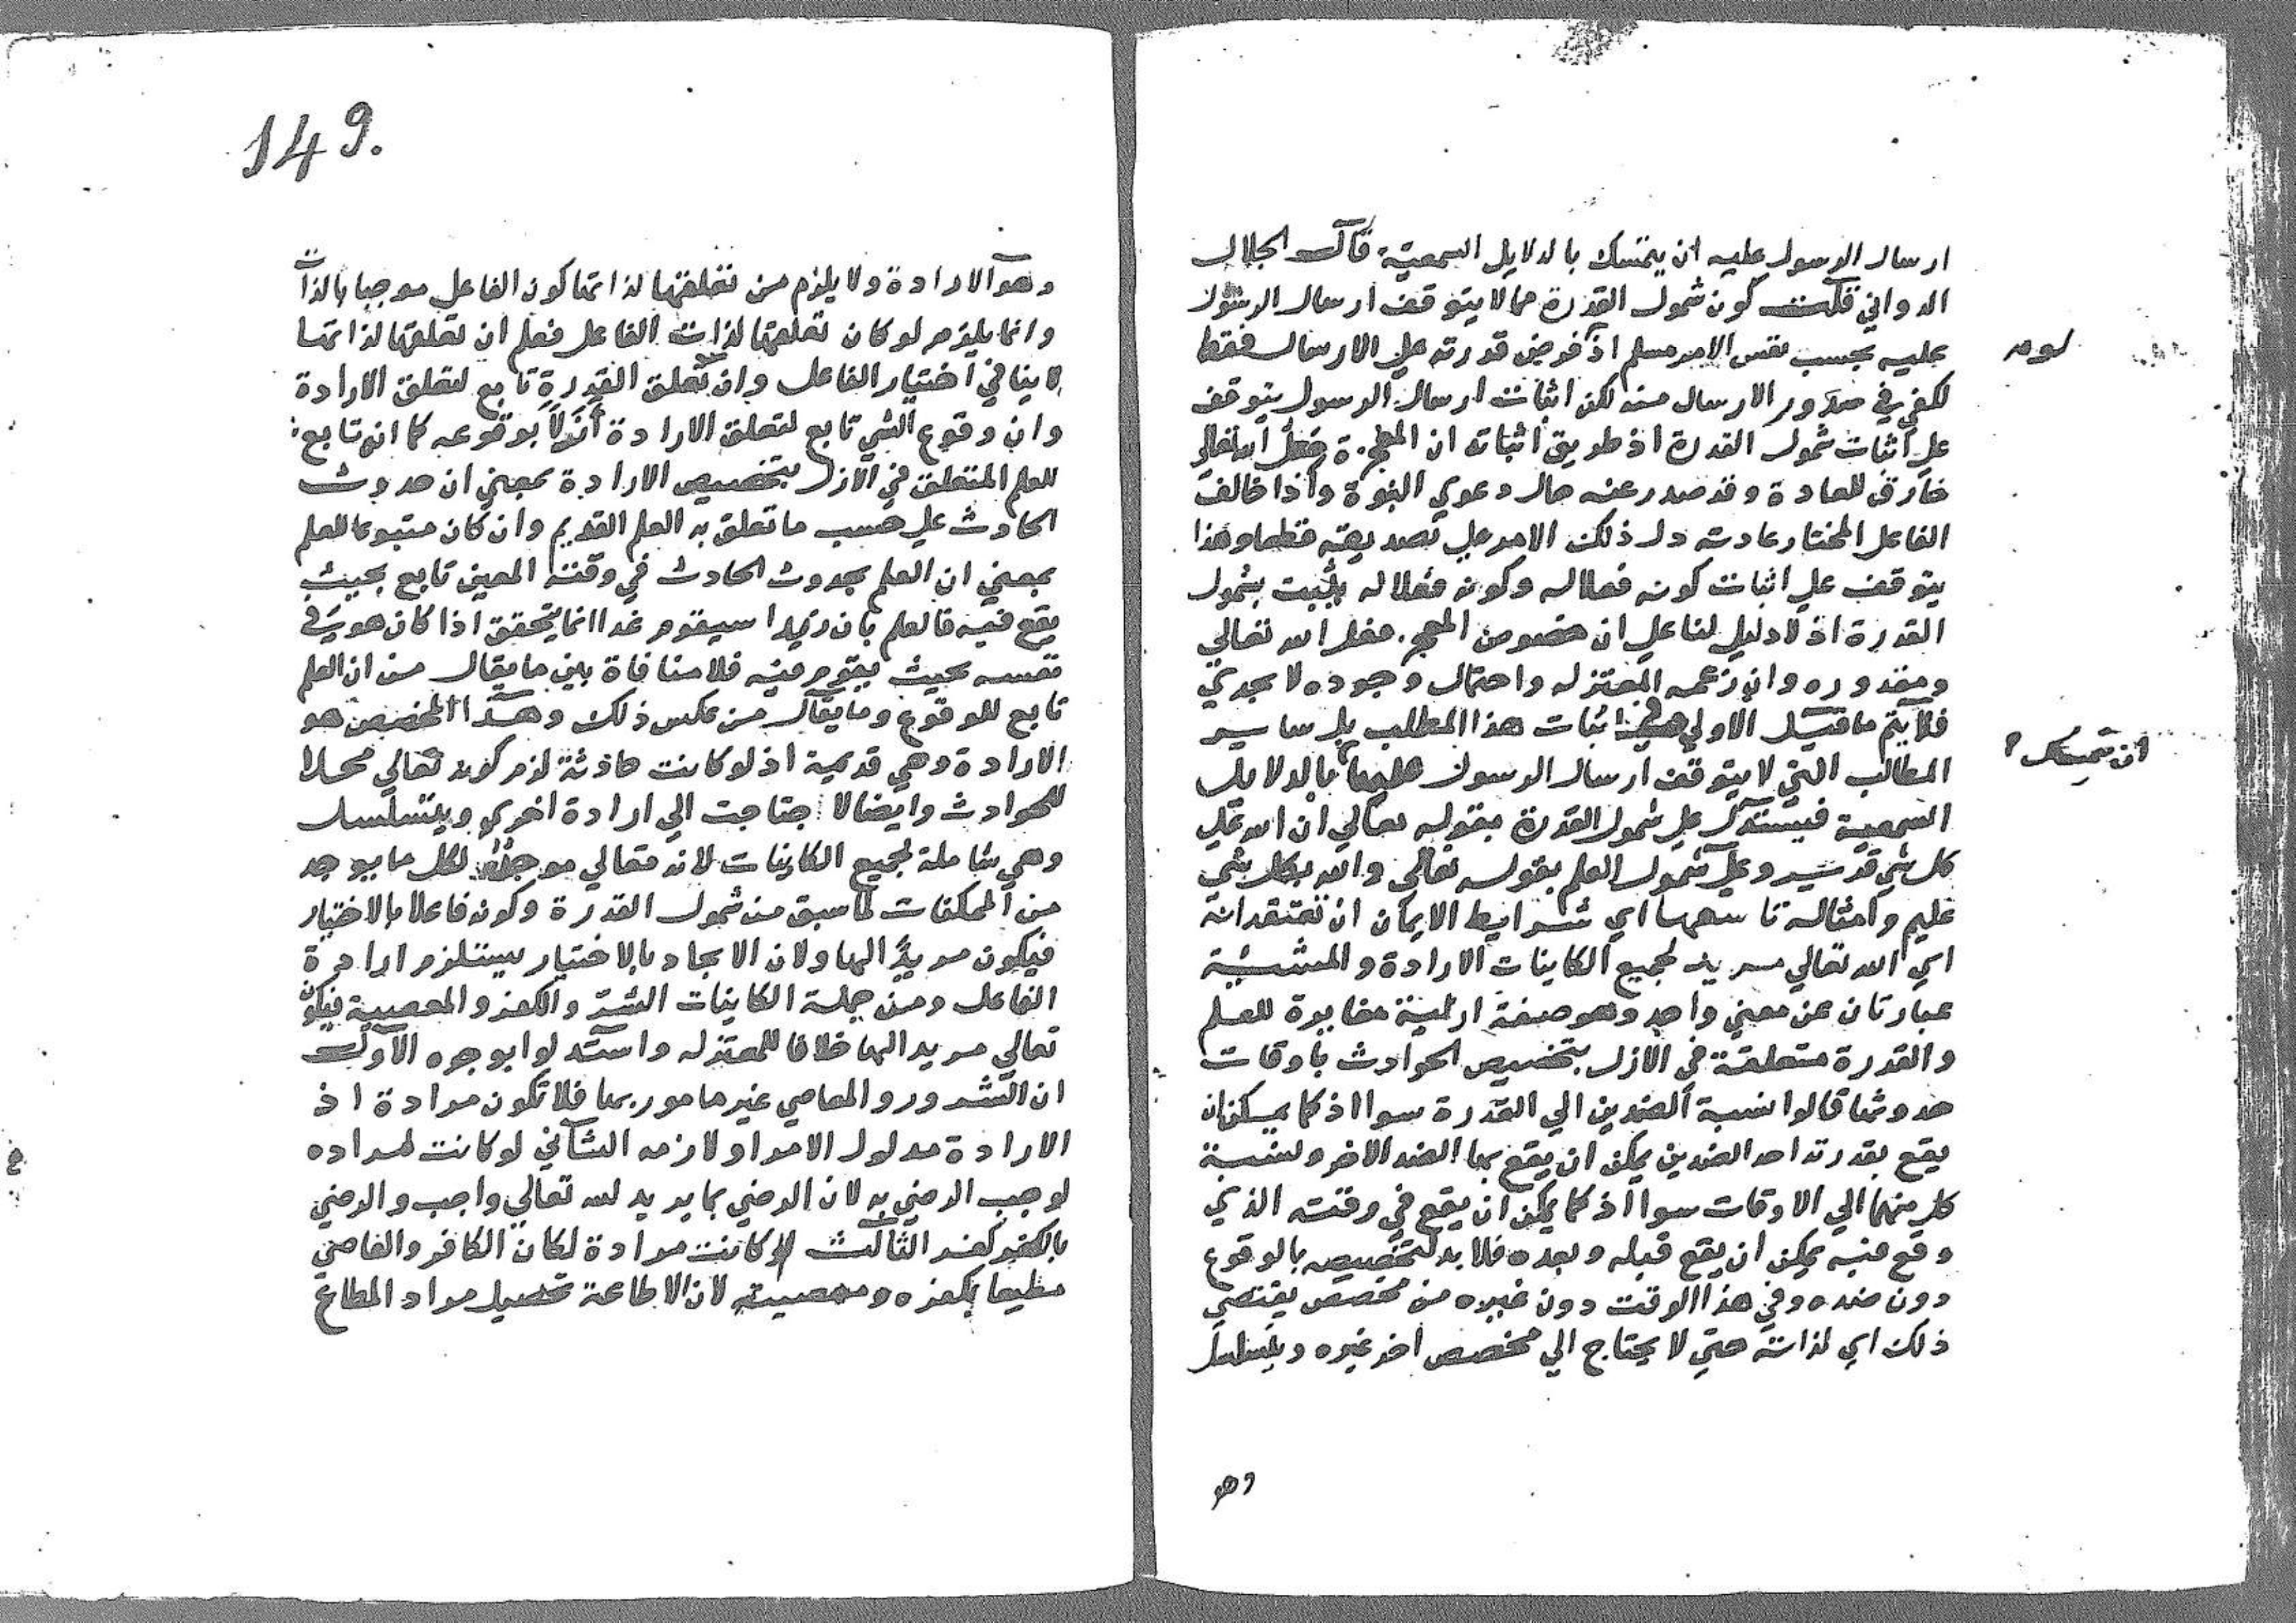 ارسال الرسول عليه ان يتمسك بالدلايل السمعية قال الجلال
الدواني قلت كون شمول القدرة مما لا يتوقف ارسال الرسول
عليه بحسب نفس الامر مسلم اذ فرض قدرته علي الارسال فقط
لكفي في صدور الارسال منه لكن اثبات ارسال الرسول يتوقف
علي اثبات شمول القدرة اذ طريق اثباته ان المعجزة فعل الله تعالي
خارق للعادة وقد صدر عنه حال دعوي النبوة واذا خالف
الفاعل المختار عادته دل ذلك الامر علي تصديقه قطعا وهذا
يتوقف علي اثبات كونه فعلا له وكونه فعلا له يثبت بشمول
القدرة اذ لا دليل لنا علي ان خصوص المعجز فعل الله تعالي
ومقدوره وان زعمه المعتزله واحتمال وجوده لا يجدي
فلا يتم ما قيل الاولي في اثبات هذا المطلب بل ساير
المطالب التي لا يتوقف ارسال الرسول عليها بالدلايل
السمعية فيستدل علي شمول القدرة بقوله تعالي ان الله علي
كل شي قدير وعلي شمول العلم بقوله تعالي والله بكل شي
عليم وامثاله تاسعها اي شرايط الايمان ان تعتقد انه
اي الله تعالي مريد لجميع الكاينات الارادة والمشية
عبارتان عن معني واحد وهو صفة ازلية مغايرة للعلم
والقدرة متعلقة في الازل بتخصيص الحوادث باوقات
حدوثها قالوا نسبة الضدين الي القدرة سوا اذ كما يمكن ان
يقع بقدرته احد الضدين يمكن ان يقع بها الضد الاخر ونسبة
كل منهما الي الاوقات سوا اذ كما يمكن ان يقع في وقته الذي
وقع فيه يمكن ان يقع قبله وبعده فلا بد لتخصيصه بالوقوع
دون ضده وفي هذا الوقت دون غيره من مخصص يقتضي
ذلك اي لذاته حتي لا يحتاج الي مخصص اخر غيره ويتسلسل
وهو
ان تمسك
149.
وهو الارادة ولا يلزم من تعلقها لذاتها كون الفاعل موجبا بالذات
وانما يلزم لو كان تعلقها لذات الفاعل فعلم ان تعلقها لذاتها
لا ينافي اختيار الفاعل وان تعلق القدرة تابع لتعلق الارادة
وان وقوع الشي تابع لتعلق الارادة ازلا بوقوعه كما انه تابع
للعلم المتعلق في الازل بتخصيص الارادة بمعني ان حدوث
الحادث علي حسب ما تعلق به العلم القديم وان كان متبوعا للعلم
بمعني ان العلم بحدوث الحادث في وقته المعين تابع بحيث
يقع فيه فالعلم بان زيدا سيقوم غدا انما يتحقق اذا كان هو في
نفسه بحيث يقوم فيه فلا منافاة بين ما يقال من ان العلم
تابع للوقوع وما يقال من عكس ذلك وهذا المخصص هو
الارادة وهي قديمة اذ لو كانت حادثة لزم كونه تعالي محلا
للحوادث وايضا لاحتاجت الي ارادة اخري ويتسلسل
وهي شاملة لجميع الكاينات لانه تعالي موجد لكل ما يوجد
من الممكنات لما سبق من شمول القدرة وكونه فاعلا بالاختيار
فيكون مريدا لها ولان الايجاد بالاختيار يستلزم ارادة
الفاعل ومن جملة الكاينات الشر والكفر والمعصية فيكون
تعالي مريدا لها خلافا للمعتزله واستدلوا بوجوه الاول
ان الشرور والمعاصي غير مامور بها فلا تكون مرادة اذ
الارادة مدلول الامر او لازمه الثاني لو كانت لمراده
لوجب الرضي به لان الرضي بما يريد لله تعالي واجب والرضي
بالكفر كفر الثالث لو كانت مرادة لكان الكافر والعاصي
مطيعا بكفره ومعصيته لان الاطاعة تحصيل مراد المطاع